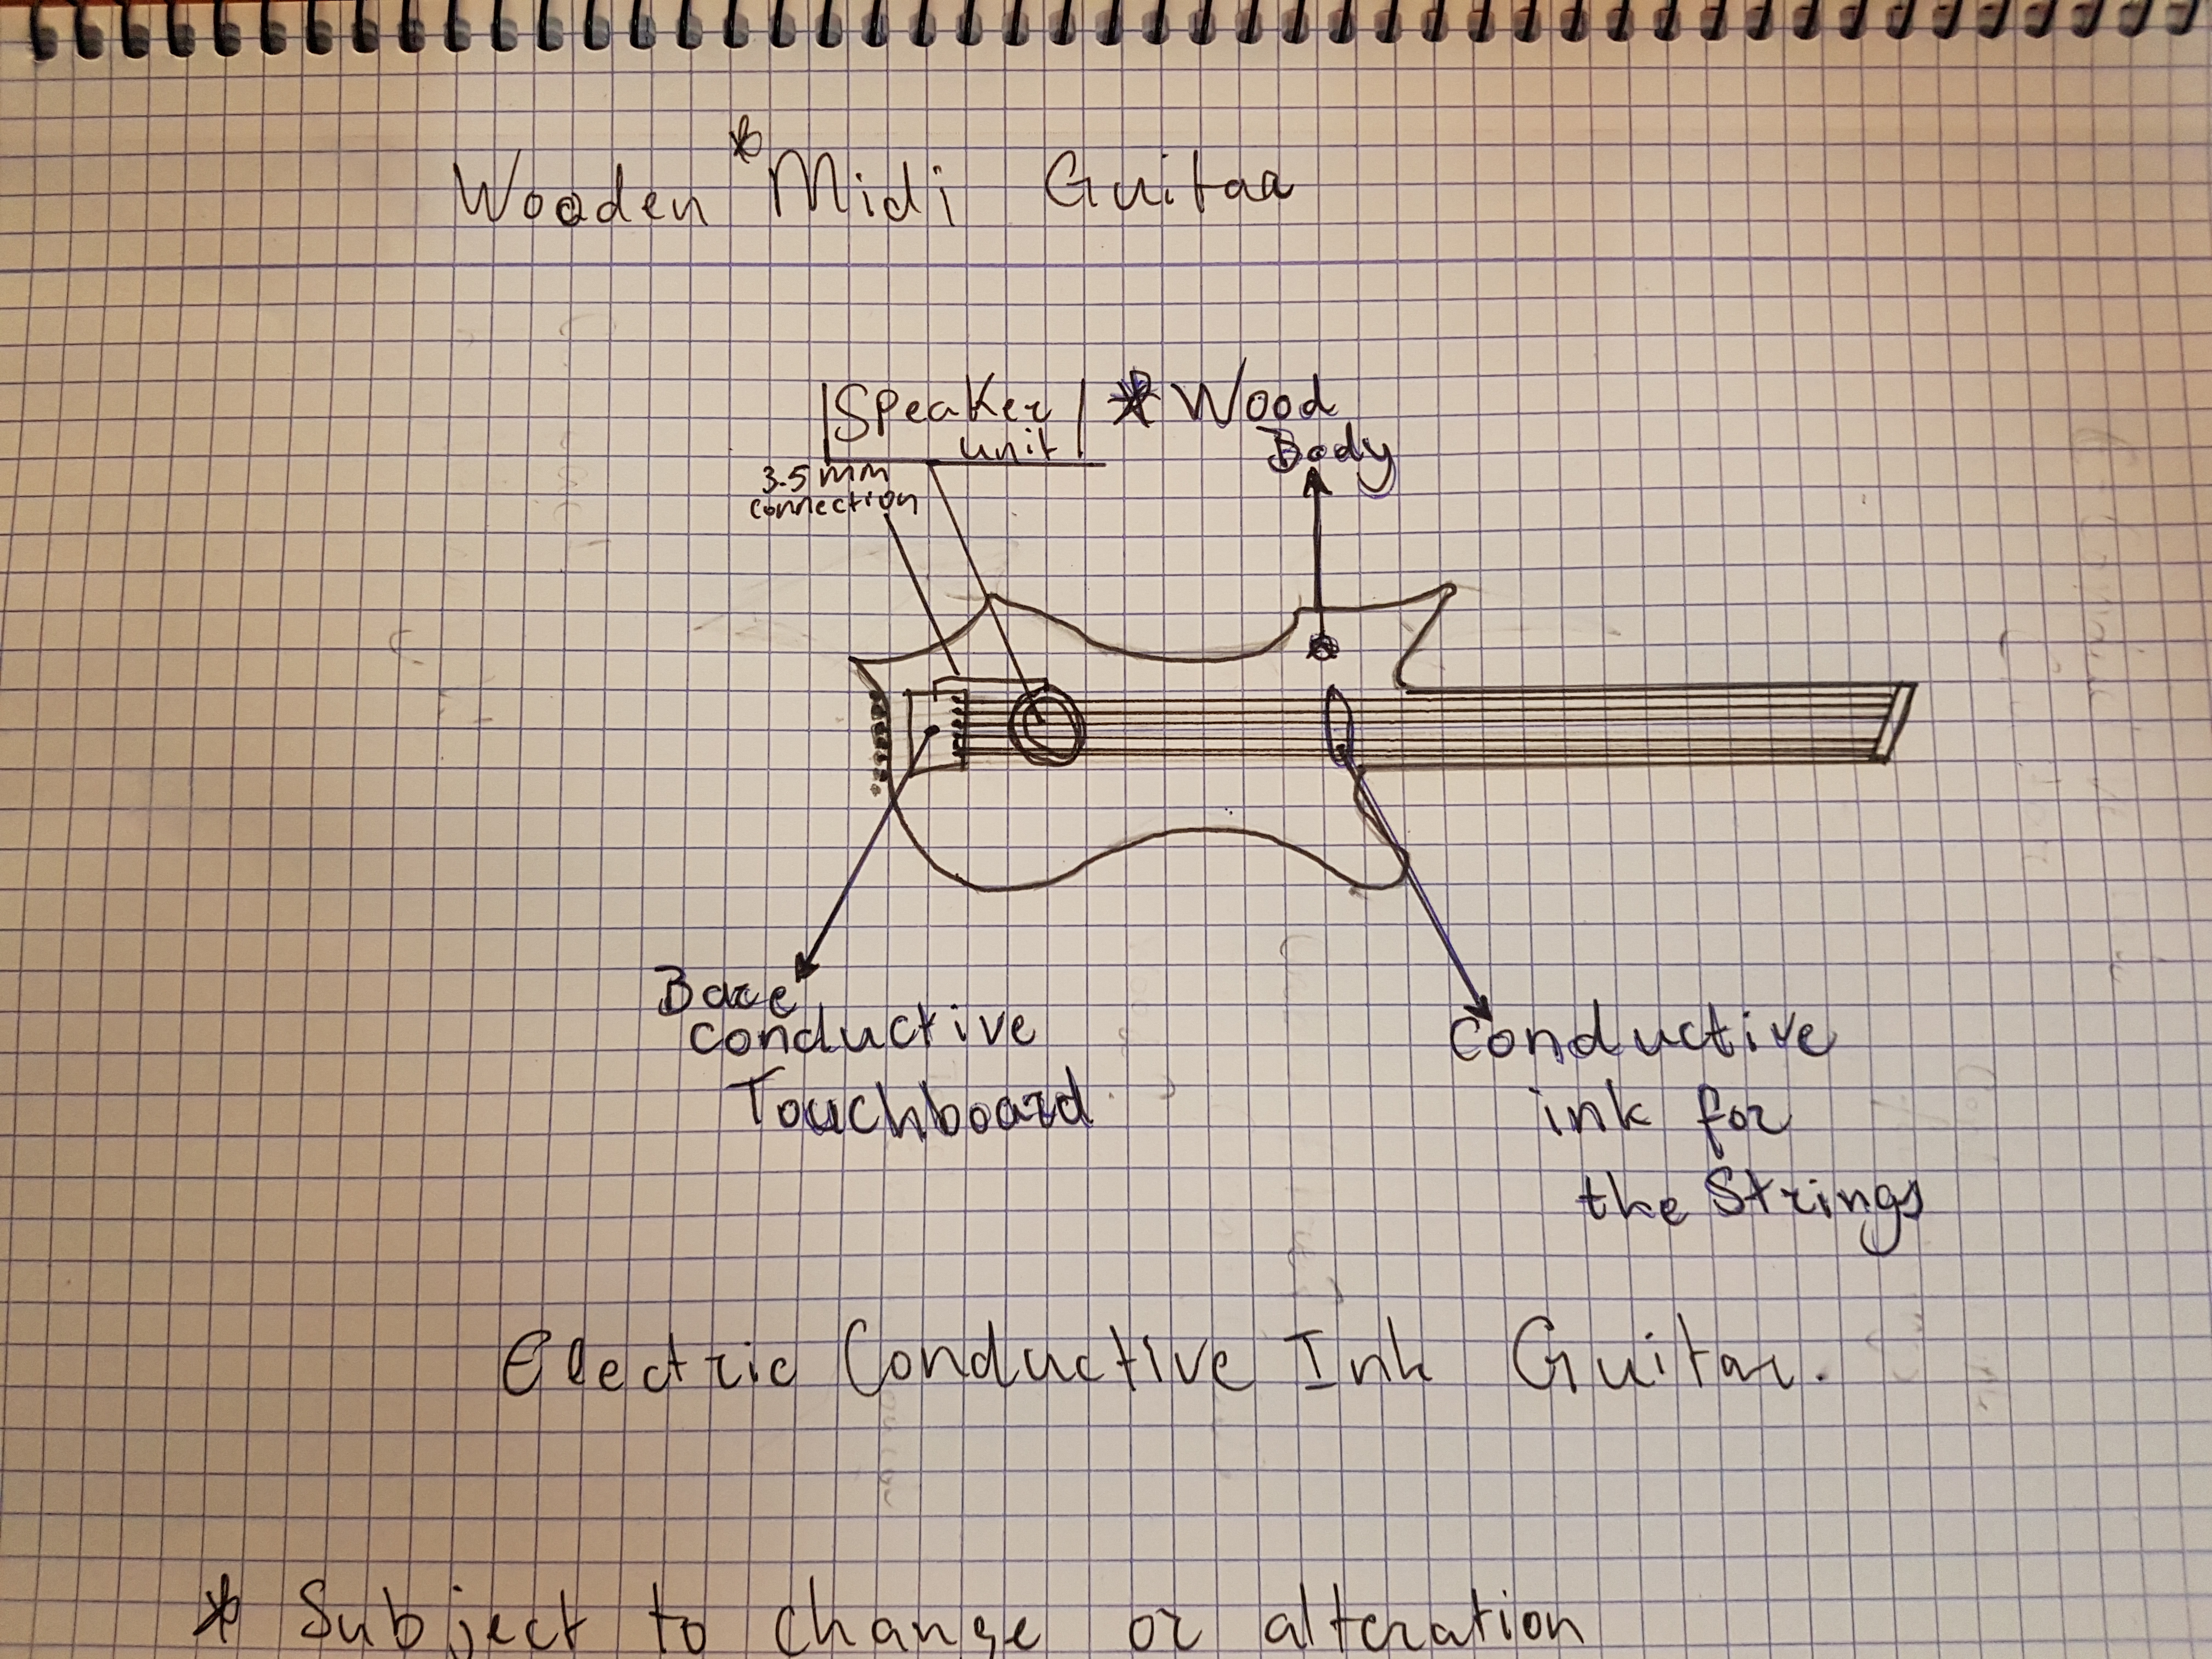 Wooden *Midi Guitar
Speaker
unit
* Wood
Body
3.5 mm
connection
Bare
conductive
Touchboard
Conductive
ink for
the Strings
Electric Conductive Ink Guitar.
* Subject to change or alteration